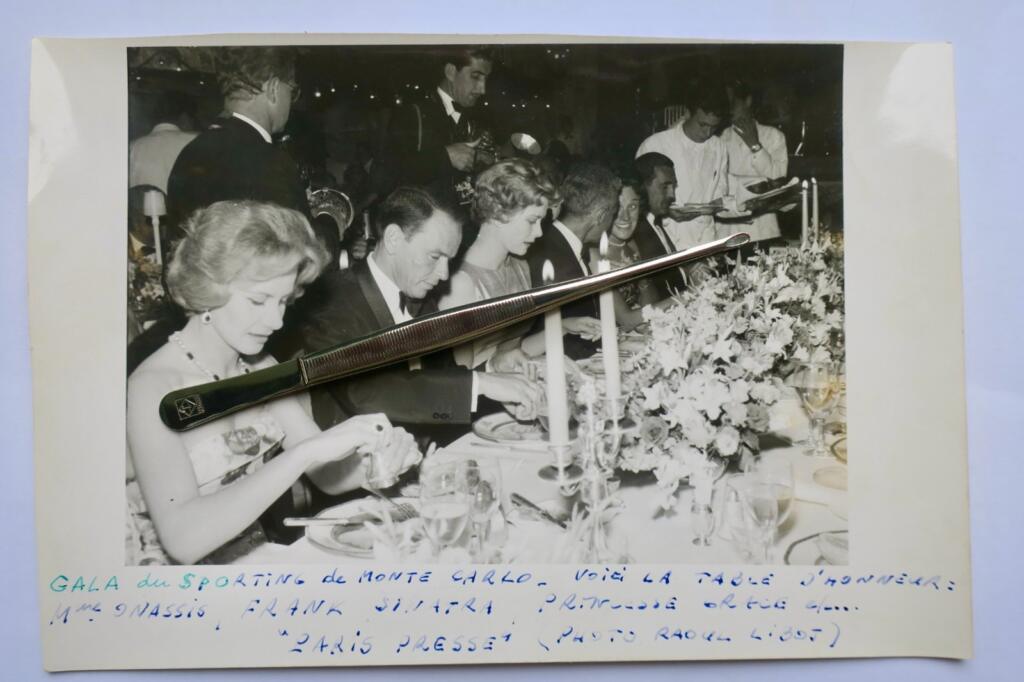 GALA du SPORTING de MONTE CARLO - VOICI LA TABLE D'HONNEUR :
Mme ONASSIS, FRANK SINATRA PRINCESSE GRACE et...
"PARIS PRESSE" (PHOTO RAOUL LIBOT)